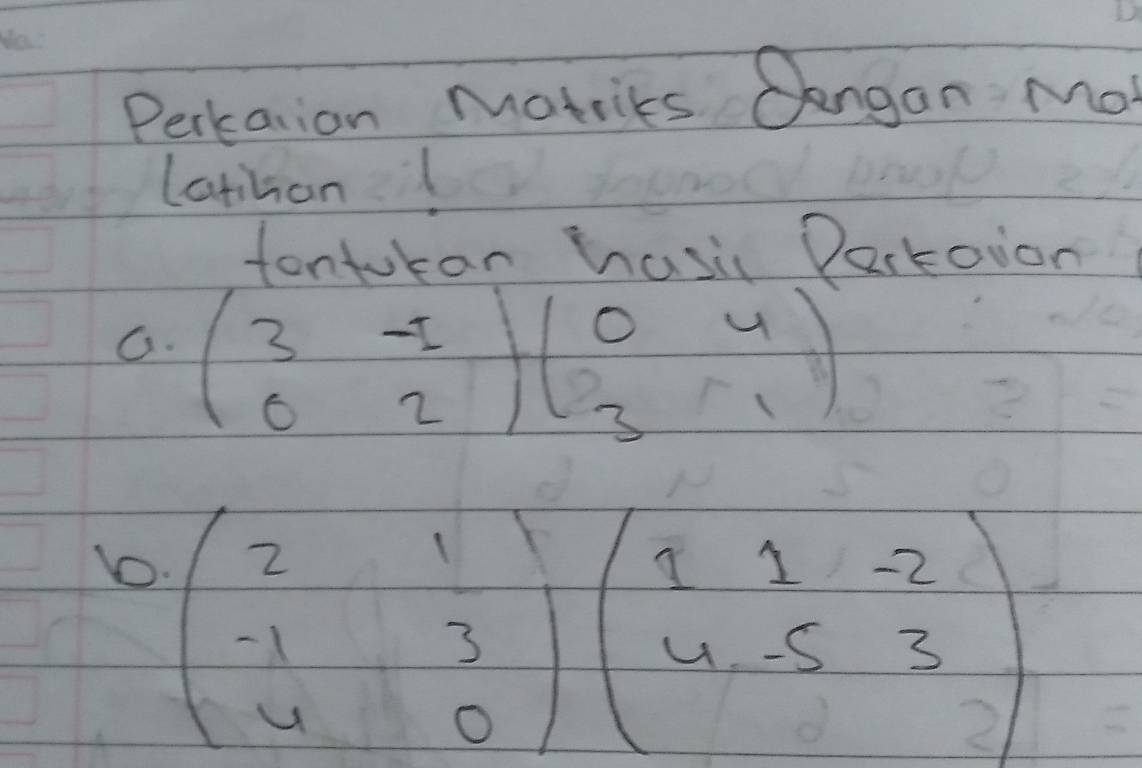 Perkalian Matriks Dengan Mat
Latihan !
tentukan hasil Perkalian
a. ( 3 -1 ) ( 0 4 )
( 0 2 ) ( 3 1 )
b. ( 2 1 ) ( 1 1 -2 )
( -1 3 ) ( 4 -5 3 )
( 4 0 ) ( )